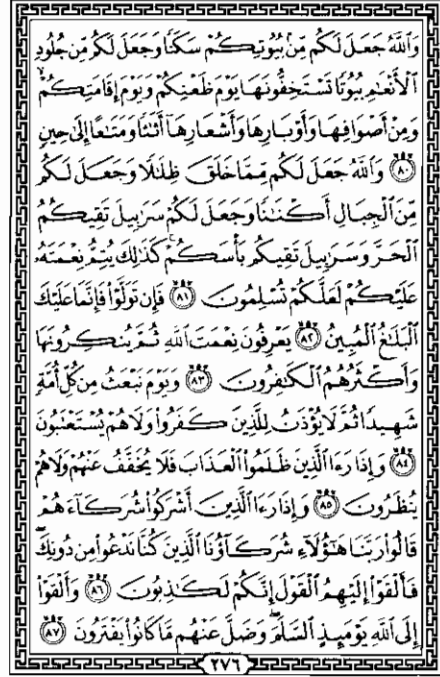 وَٱللَّهُ جَعَلَ لَكُم مِّنۢ بُيُوتِكُمْ سَكَنًا وَجَعَلَ لَكُم مِّن جُلُودِ
ٱلْأَنْعَٰمِ بُيُوتًا تَسْتَخِفُّونَهَا يَوْمَ ظَعْنِكُمْ وَيَوْمَ إِقَامَتِكُمْ ۙ
وَمِنْ أَصْوَافِهَا وَأَوْبَارِهَا وَأَشْعَارِهَآ أَثَٰثًا وَمَتَٰعًا إِلَىٰ حِينٍ
٨٠ وَٱللَّهُ جَعَلَ لَكُم مِّمَّا خَلَقَ ظِلَٰلًا وَجَعَلَ لَكُم
مِّنَ ٱلْجِبَالِ أَكْنَٰنًا وَجَعَلَ لَكُمْ سَرَٰبِيلَ تَقِيكُمُ
ٱلْحَرَّ وَسَرَٰبِيلَ تَقِيكُم بَأْسَكُمْ ۚ كَذَٰلِكَ يُتِمُّ نِعْمَتَهُۥ
عَلَيْكُمْ لَعَلَّكُمْ تُسْلِمُونَ ٨١ فَإِن تَوَلَّوْا۟ فَإِنَّمَا عَلَيْكَ
ٱلْبَلَٰغُ ٱلْمُبِينُ ٨٢ يَعْرِفُونَ نِعْمَتَ ٱللَّهِ ثُمَّ يُنكِرُونَهَا
وَأَكْثَرُهُمُ ٱلْكَٰفِرُونَ ٨٣ وَيَوْمَ نَبْعَثُ مِن كُلِّ أُمَّةٍ
شَهِيدًا ثُمَّ لَا يُؤْذَنُ لِلَّذِينَ كَفَرُوا۟ وَلَا هُمْ يُسْتَعْتَبُونَ
٨٤ وَإِذَا رَءَا ٱلَّذِينَ ظَلَمُوا۟ ٱلْعَذَابَ فَلَا يُخَفَّفُ عَنْهُمْ وَلَا هُمْ
يُنظَرُونَ ٨٥ وَإِذَا رَءَا ٱلَّذِينَ أَشْرَكُوا۟ شُرَكَآءَهُمْ
قَالُوا۟ رَبَّنَا هَٰٓؤُلَآءِ شُرَكَآؤُنَا ٱلَّذِينَ كُنَّا نَدْعُوا۟ مِن دُونِكَ ۖ
فَأَلْقَوْا۟ إِلَيْهِمُ ٱلْقَوْلَ إِنَّكُمْ لَكَٰذِبُونَ ٨٦ وَأَلْقَوْا۟
إِلَى ٱللَّهِ يَوْمَئِذٍ ٱلسَّلَمَ ۖ وَضَلَّ عَنْهُم مَّا كَانُوا۟ يَفْتَرُونَ ٨٧
٢٧٦